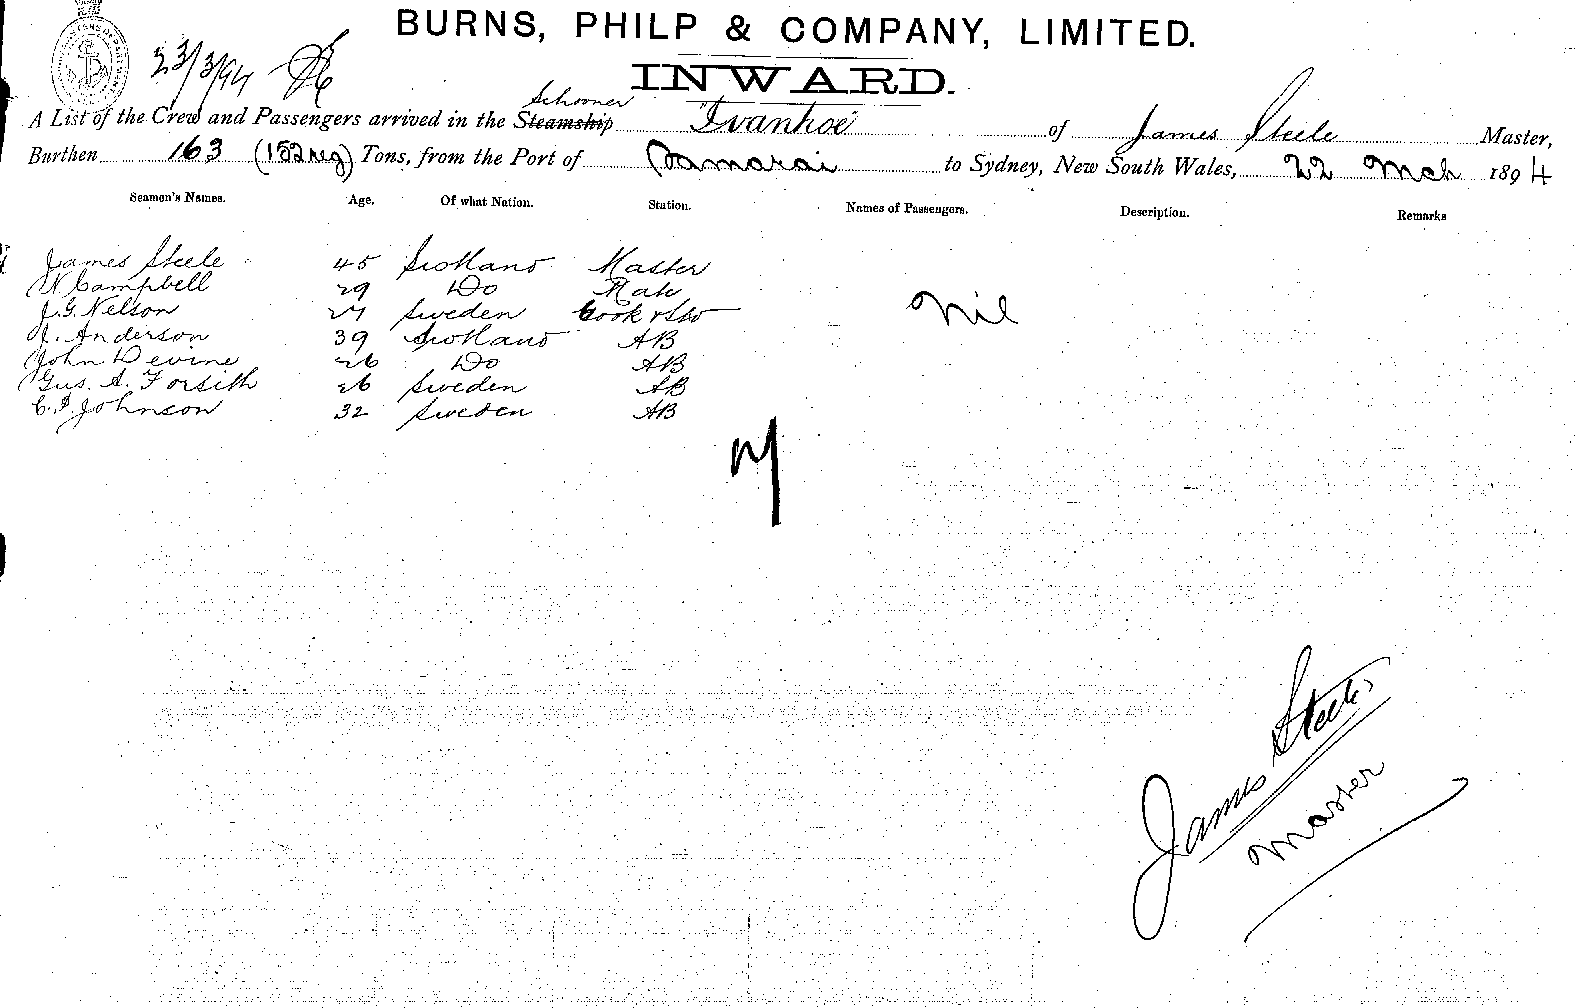 BURNS, PHILP & COMPANY, LIMITED.
23/3/94
INWARD.
Schooner
A List of the Crew and Passengers arrived in the Steamship "Ivanhoe" of James Steele Master,
Burthen 163 (152 reg) Tons, from the Port of Samarai to Sydney, New South Wales, 22 Mch 1894
Seamen's Names. Age. Of what Nation. Station. Names of Passengers. Description. Remarks
James Steele 45 Scotland Master
Campbell 29 Do Mate
J. G. Nelson 27 Sweden Cook & Std
Nil
J. Anderson 39 Scotland AB
John Devine 26 Do AB
Gus. A. Forsith 26 Sweden AB
Johnson 32 Sweden AB
James Steele
Master